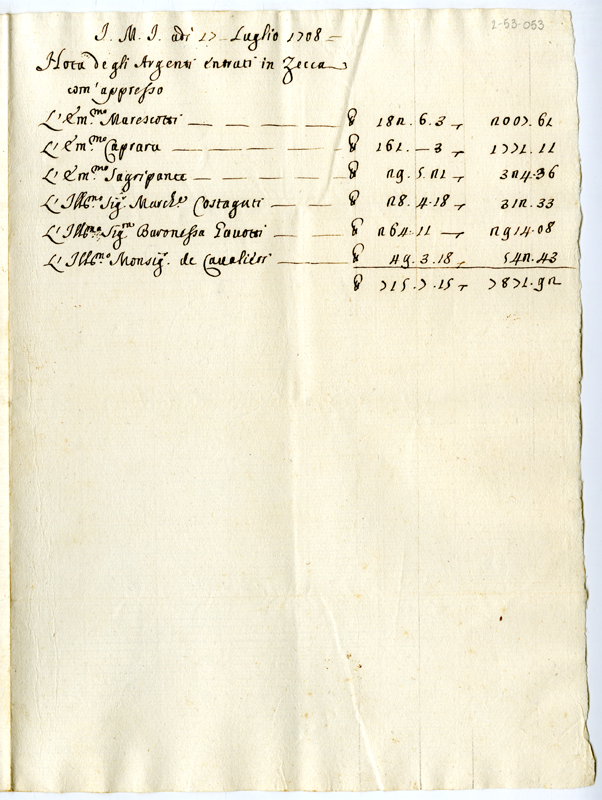 2-53-053
J. M. J. adi 17 Luglio 1708 =
Nota degli Argenti entrati in Zecca
com'appresso
L'Em.mo Marescotti — — — — ℔ 182.6.3 — 2007.61
L'Em.mo Caprara — — — — ℔ 161.—3 — 1771.11
L'Em.mo Sagripante — — — ℔ 29.5.21 — 324.36
L'Ill.mo Sig.r Marche Costaguti — — ℔ 28.4.18 — 312.33
L'Ill.ma Sig.ra Baronessa Pavotti — — ℔ 264.11 — 2914.08
L'Ill.mo Monsig.r de Cavalieri — — ℔ 49.3.18 — 542.43
℔ 715.7.15 — 7871.92